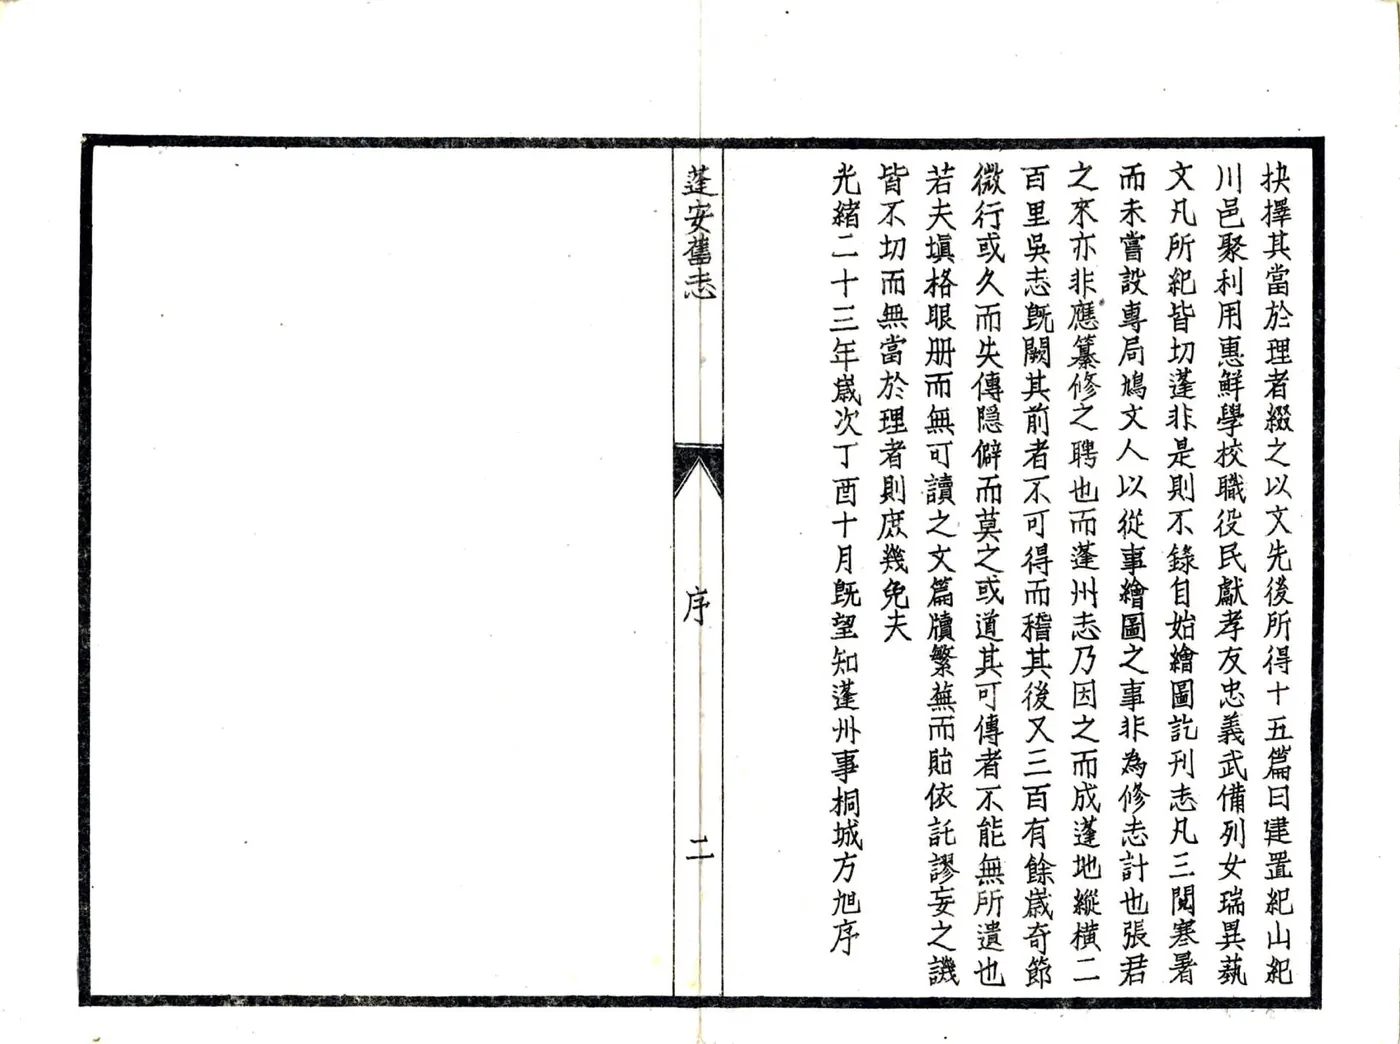 抉擇其當於理者綴之以文先後所得十五篇曰建置紀山紀
川邑聚利用惠鮮學校職役民獻孝友忠義武備列女瑞異蓺
文凡所紀皆切蓬非是則不錄自始繪圖訖刊志凡三閱寒暑
而未嘗設專局鳩文人以從事繪圖之事非為修志計也張君
之來亦非應纂修之聘也而蓬州志乃因之而成蓬地縱橫二
百里吳志既闕其前者不可得而稽其後又三百有餘歲奇節
微行或久而失傳隱僻而莫之或道其可傳者不能無所遺也
若夫填格眼册而無可讀之文篇牘繁蕪而貽依託謬妄之譏
皆不切而無當於理者則庶幾免夫
光緒二十三年歲次丁酉十月既望知蓬州事桐城方旭序
蓬安舊志
序
二